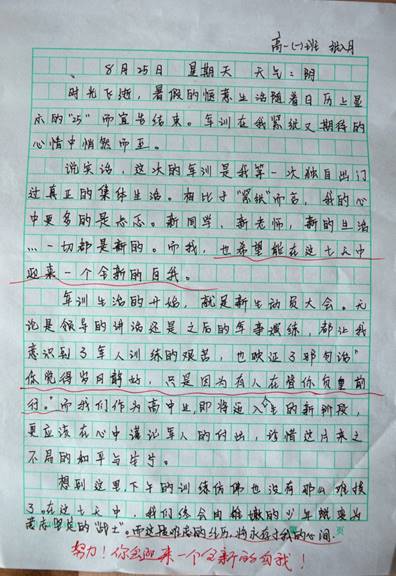 高一(一)班
8月25日 星期天 天气：阴
时光飞逝，暑假的惬意生活随着日历上显
示的"25"而宣告结束。军训在我紧张又期待的
心情中悄然而至。
说实话，这次的军训是我第一次独自出门
过真正的集体生活。相比于"紧张"而言，我的心
中更多的是忐忑。新同学，新老师，新的生活
…一切都是新的。而我，也希望能在这七天中
迎来一个全新的自我。
军训生活的开始，就是新生动员大会。无
论是领导的讲话还是之后的军事演练，都让我
意识到了军人训练的艰苦，也映证了那句话"
你觉得岁月静好，只是因为有人在替你负重前
行。"而我们作为高中生即将迈入人生的新阶段，
更应该在心中谨记军人的付出，珍惜这片来之
不易的和平与
想到这里，下午的训练仿佛也没有那么难挨
了。在这七天中，我们终会由稚嫩的少年蜕变为
意志坚定的"战士"。而这段难忘的经历，将永存于我的心间。
努力！你会迎来一个全新的自我！